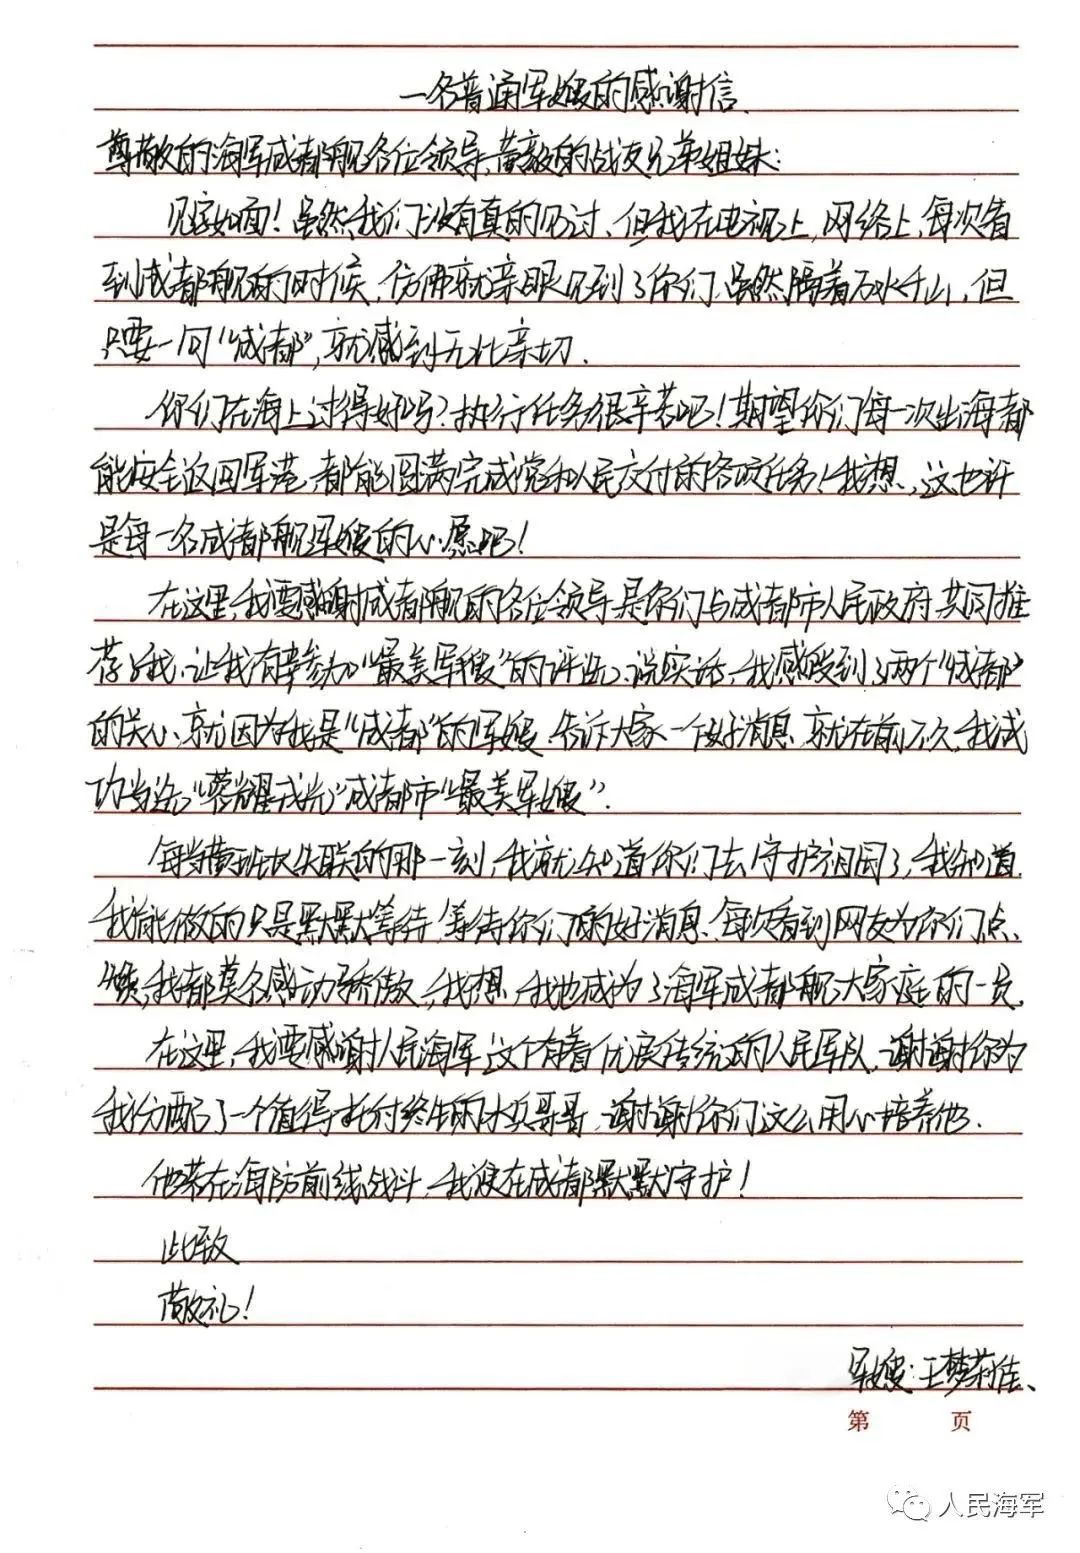 一名普通军嫂的感谢信
尊敬的海军成都舰各位领导、黄毅的战友兄弟姐妹：
见字如面！虽然我们没有真的见过，但我在电视上，网络上，每次看
到成都舰的时候，仿佛就亲眼见到了你们，虽然隔着万水千山，但
只要一句“成都”，就感到无比亲切.
你们在海上过得好吗？执行任务很辛苦吧！期望你们每一次出海都
能安全返回军港，都能圆满完成党和人民交付的各项任务！我想，这也许
是每一名成都舰军嫂的心愿吧！
在这里，我要感谢成都舰的各位领导，是你们与成都市人民政府共同推
荐了我，让我有幸参加“最美军嫂”的评选、说实话，我感受到了两个“成都”
的关心，就因为我是“成都”的军嫂，告诉大家一个好消息，就在前不久，我成
功当选“蓉耀戎光”成都市“最美军嫂”.
每当黄班长失联的那一刻，我就知道你们去守护祖国了，我知道
我能做的只是默默等待，等待你们的好消息，每次看到网友为你们点
赞，我都莫名感动骄傲，我想，我也成为了海军成都舰大家庭的一员
在这里，我要感谢人民海军这个有着优良传统的人民军队，谢谢你为
我分配了一个值得托付终生的水兵哥哥，谢谢你们这么用心培养他.
他若在海防前线战斗，我便在成都默默守护！
此致
敬礼！
军嫂：王梦莉佳
第 页
人民海军